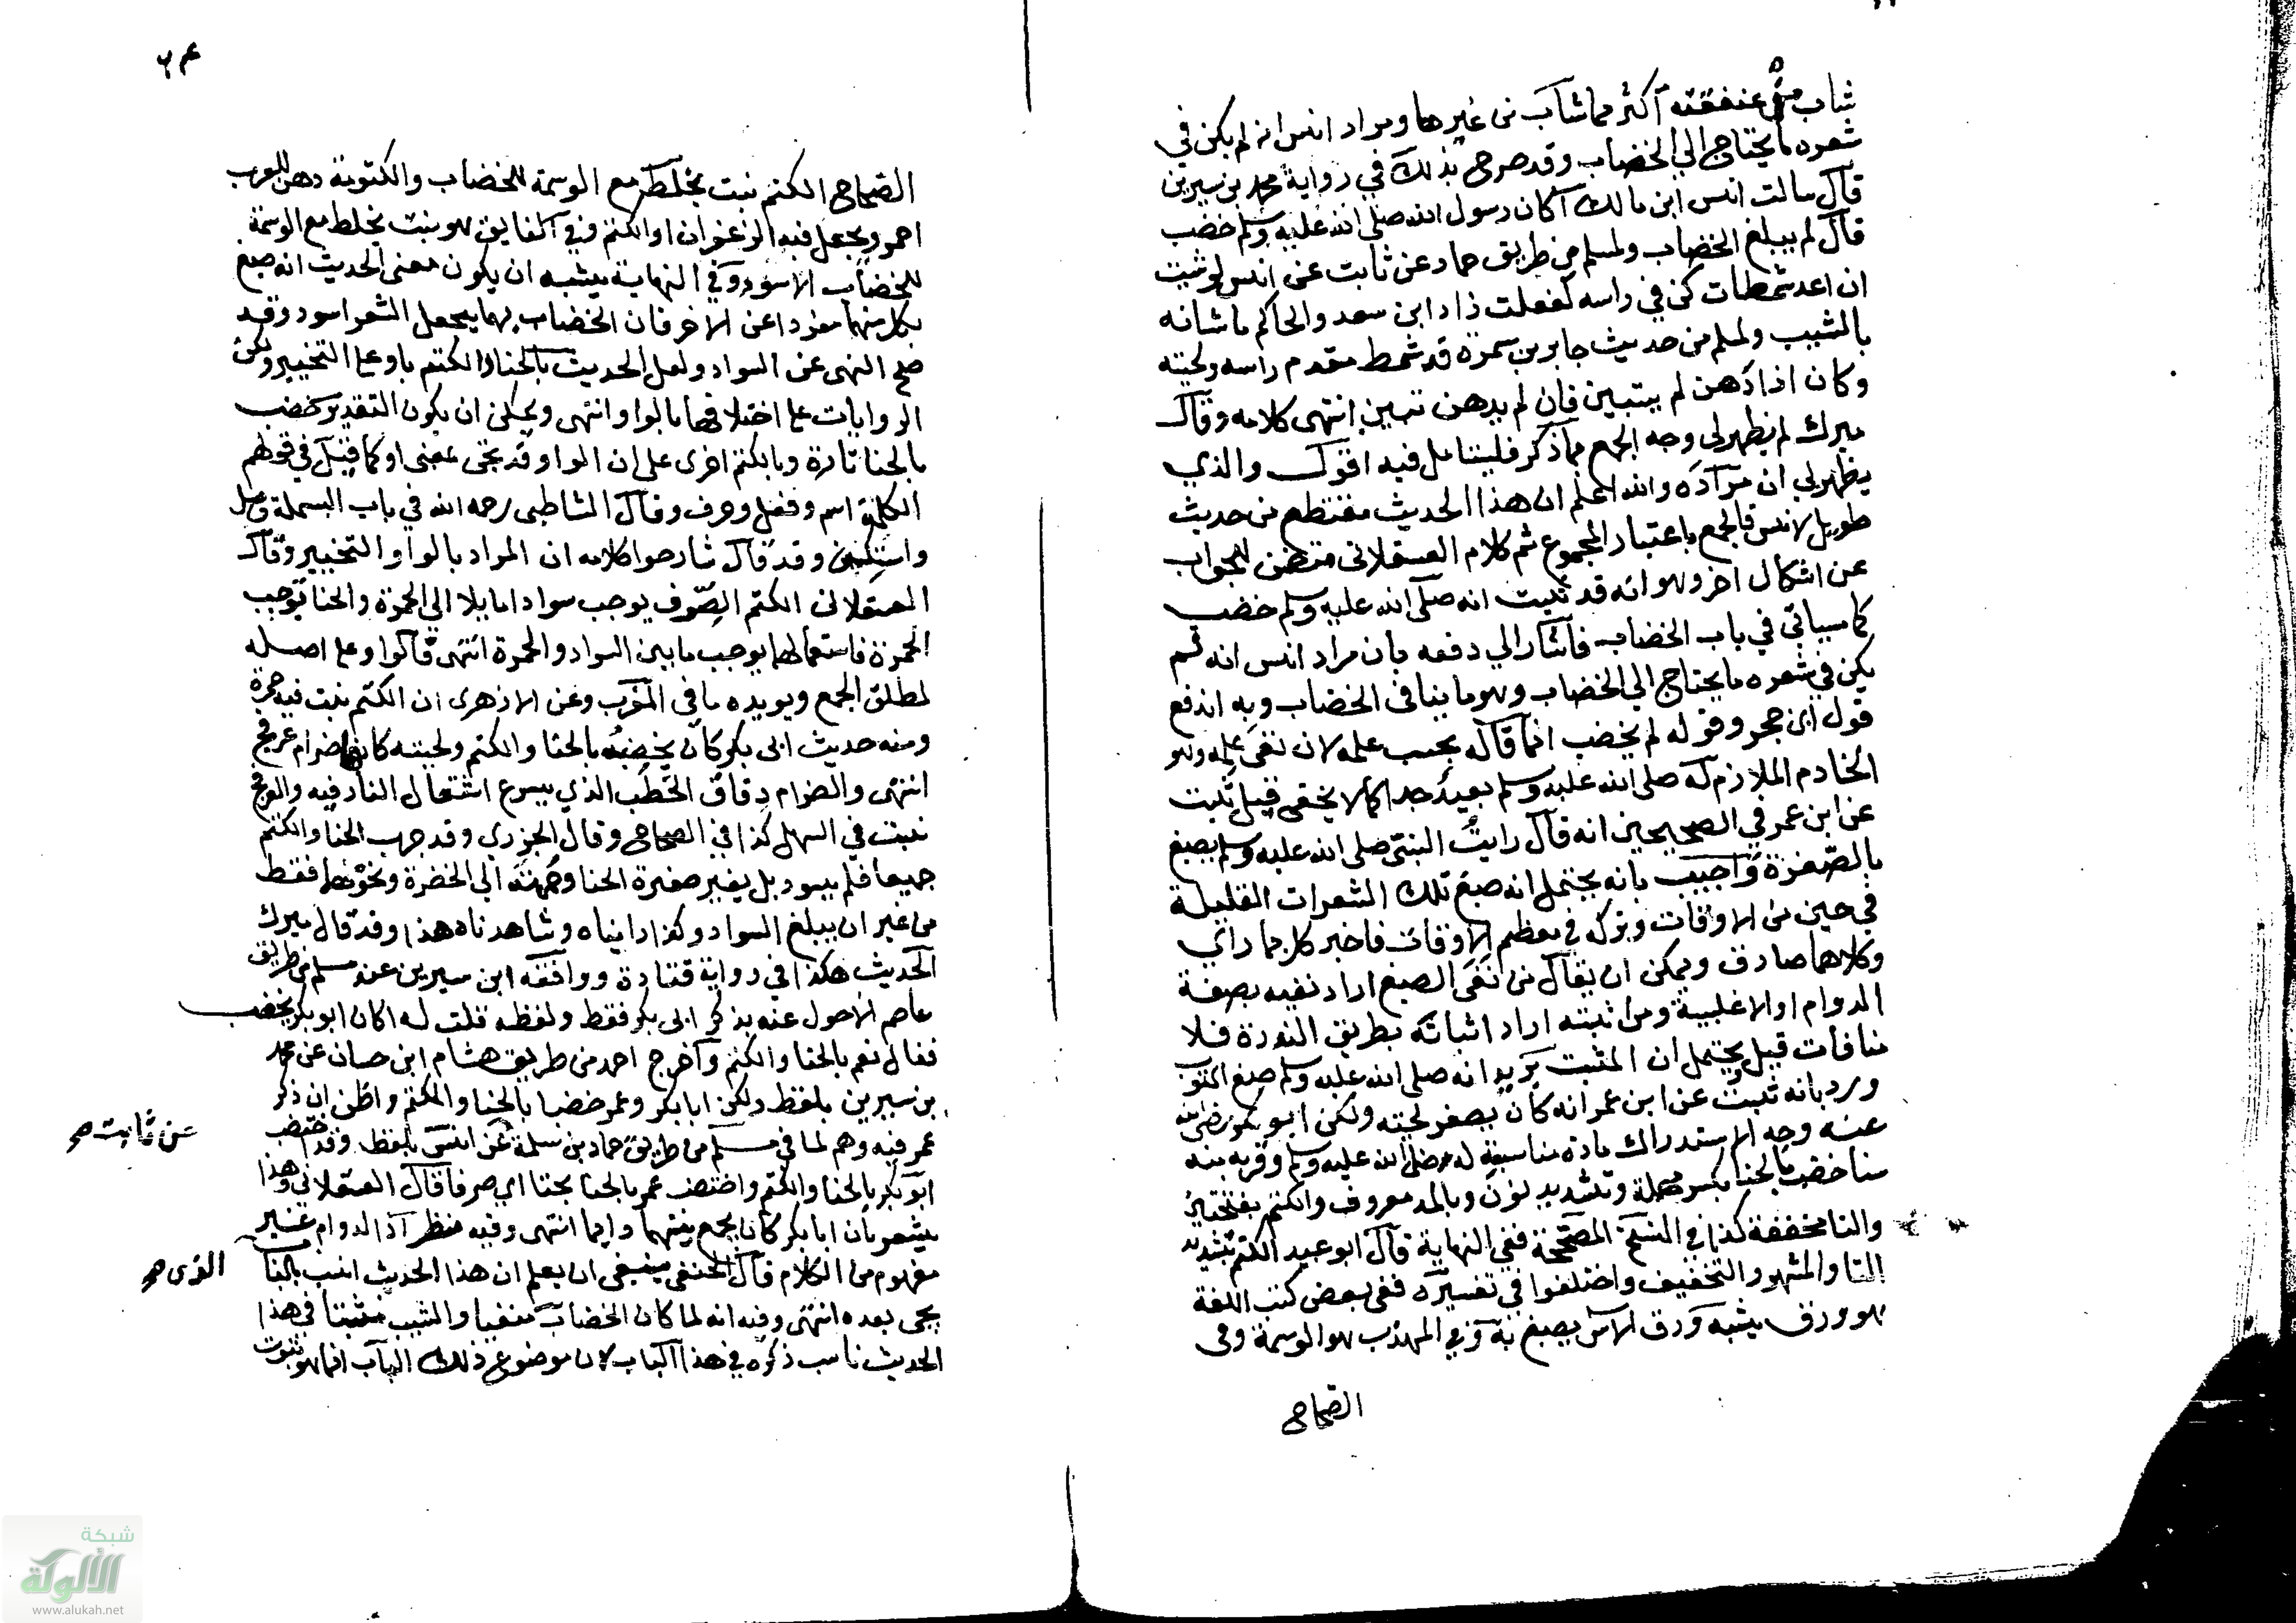 شاب من عنفقته أكثر مما شاب من غيرها ومراد انس انه لم يكن في
شعره ما يحتاج الي الخضاب وقد صرح بذلك في رواية محمد بن سيرين
قال سالت انس ابن مالك اكان رسول الله صلى الله عليه وسلم خضب
قال لم يبلغ الخضاب ولمسلم من طريق حماد عن ثابت عن انس لو شئت
ان اعد شمطات كن في راسه لفعلت زاد ابن سعد والحاكم ما شانه
بالشيب ولمسلم من حديث جابر بن سمرة قد شمط مقدم راسه ولحيته
وكان اذا ادهن لم يتبين فان لم يدهن تبين انتهى كلامه وقال
ميرك لم يظهر لي وجه الجمع مما ذكر فليتامل فيه اقول والذي
يظهر لي ان مراده والله اعلم ان هذا الحديث مقتطع من حديث
طويل لانس فالجمع باعتبار المجموع ثم كلام العسقلاني متضمن للجواب
عن اشكال اخر وهو انه قد ثبت انه صلى الله عليه وسلم خضب
كما سياتي في باب الخضاب فاشار الي دفعه بان مراد انس انه لم
يكن في شعره ما يحتاج الي الخضاب وهو ما ينافى الخضاب وبه اندفع
قول ابن حجر وقوله لم يخضب انما قاله بحسب علمه لان نفى علمه وهو
الخادم الملازم له صلى الله عليه وسلم بعيد جدا كما لا يخفى قيل ثبت
عن ابن عمر في الصحيحين انه قال رايت النبي صلى الله عليه وسلم يصبغ
بالصفرة واجيب بانه يحتمل انه صبغ تلك الشعرات القليلة
في حين من الاوقات وتركه في معظم الاوقات فاخبر كل بما راي
وكلاهما صادق ويمكن ان يقال من نفى الصبغ اراد نفيه بصفة
الدوام او الاغلبية ومن اثبته اراد اثباته بطريق الندرة فلا
منافات قيل يحتمل ان المثبت يريد انه صلى الله عليه وسلم صبغ الثوب
ورد بانه ثبت عن ابن عمر انه كان يصفر لحيته ولكن ابو بكر رضي الله
عنه وجه الاستدراك مادة مناسبة له صلى الله عليه وسلم وقربه منه
سنا خضب بالحنا بكسر مهملة وتشديد نون وبالمد معروف والكتم بفتحتين
والتا مخففة كذا في النسخ المصححة ففي النهاية قال ابو عبيد الكتم بتشديد
التا والمشهور التخفيف واختلفوا في تفسيره ففي بعض كتب اللغة
هو ورق يشبه ورق الاس يصبغ به وفي المهذب هو الوسمة وفى
الصحاح
الصحاح الكتم نبت يخلط مع الوسمة للخضاب والكتومة دهن للعرب
احمر ويجعل فيه الزعفران او الكتم وفي الفايق هو نبت يخلط مع الوسمة
للخضاب الاسود وفي النهاية يشبه ان يكون معنى الحديث انه صبغ
بكل منهما مفردا عن الاخر فان الخضاب بهما يجعل الشعر اسود وقد
صح النهى عن السواد ولعل الحديث بالحنا او الكتم باو على التخيير ولكن
الروايات على اختلافها بالواو انتهى ويمكن ان يكون التقدير خضب
بالحنا تارة وبالكتم اخرى على ان الواو قد تجى بمعنى او كما قيل في قولهم
الكلمة اسم وفعل وحرف وقال الشاطبي رحمه الله في باب البسملة وصل
واسكتن وقد قال شارحوا كلامه ان المراد بالواو التخيير وقال
العسقلاني الكتم الصرف يوجب سوادا مايلا الي الحمرة والحنا توجب
الحمرة فاستعمالهما يوجب ما بين السواد والحمرة انتهى قالوا وعلى اصله
لمطلق الجمع ويويده ما في المغرب وعن الازهرى ان الكتم نبت فيه حمرة
ومنه حديث ابي بكر كان يخضب بالحنا والكتم ولحيته كانها ضرام عرفج
انتهى والضرام دقاق الحطب الذي يسرع اشتعال النار فيه والعرفج
نبت في السهل كذا في الصحاح وقال الجزري وقد جرب الحنا والكتم
جميعا فلم يسود بل يغير صفرة الحنا وحمرته الى الخضرة ونحوها فقط
من غير ان يبلغ السواد وكذا رايناه وشاهدناه هذا وقد قال ميرك
الحديث هكذا في رواية قتادة ووافقه ابن سيرين عند مسلم من طريق
عاصم الاحول عنه بذكر ابى بكر فقط ولفظه قلت له اكان ابو بكر يخضب
فقال نعم بالحنا والكتم واخرج احمد من طريق هشام ابن حسان عن محمد
بن سيرين بلفظ ولكن ابا بكر وعمر خضبا بالحنا والكتم واظن ان ذكر
عمر فيه وهم لما في مسلم من طريق حماد بن سلمة عن انس بلفظ وقد اختضب
عن ثابت صح
ابو بكر بالحنا والكتم واختضب عمر بالحنا بحتا اي صرفا قال العسقلاني وهذا
يشعر بان ابا بكر كان يجمع بينهما دايما انتهى وفيه نظر اذ الدوام غير
مفهوم من الكلام قال الحنفي ينبغي ان يعلم ان هذا الحديث انسب بالباب
الذي صح
يجى بعده انتهى وفيه انه لما كان الخضاب منفيا والشيب مثبتا في هذا
الحديث ناسب ذكره في هذا الباب لان موضوع ذلك الباب انما هو ثبوت
شبكة
الألوكة
www.alukah.net